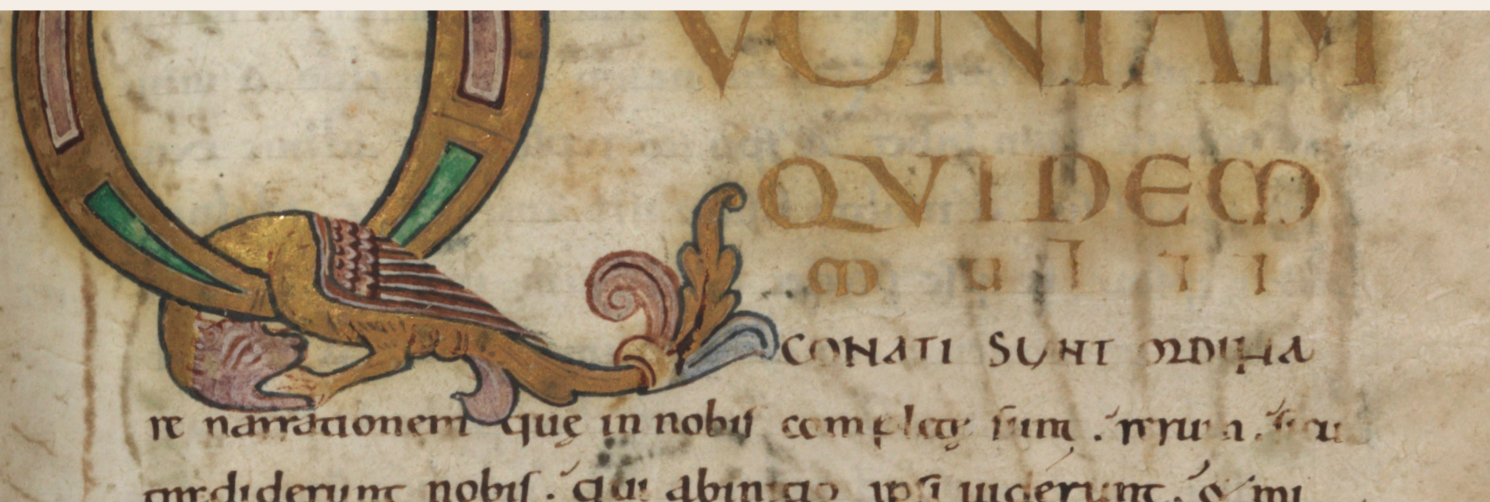 QVONIAM
QVIDEM
multi
CONATI SUNT ORDINA
re narrationem quę in nobis complete sunt . rerum . sicu
tradiderunt nobis . qui abinitio ipsi uiderunt . & mi